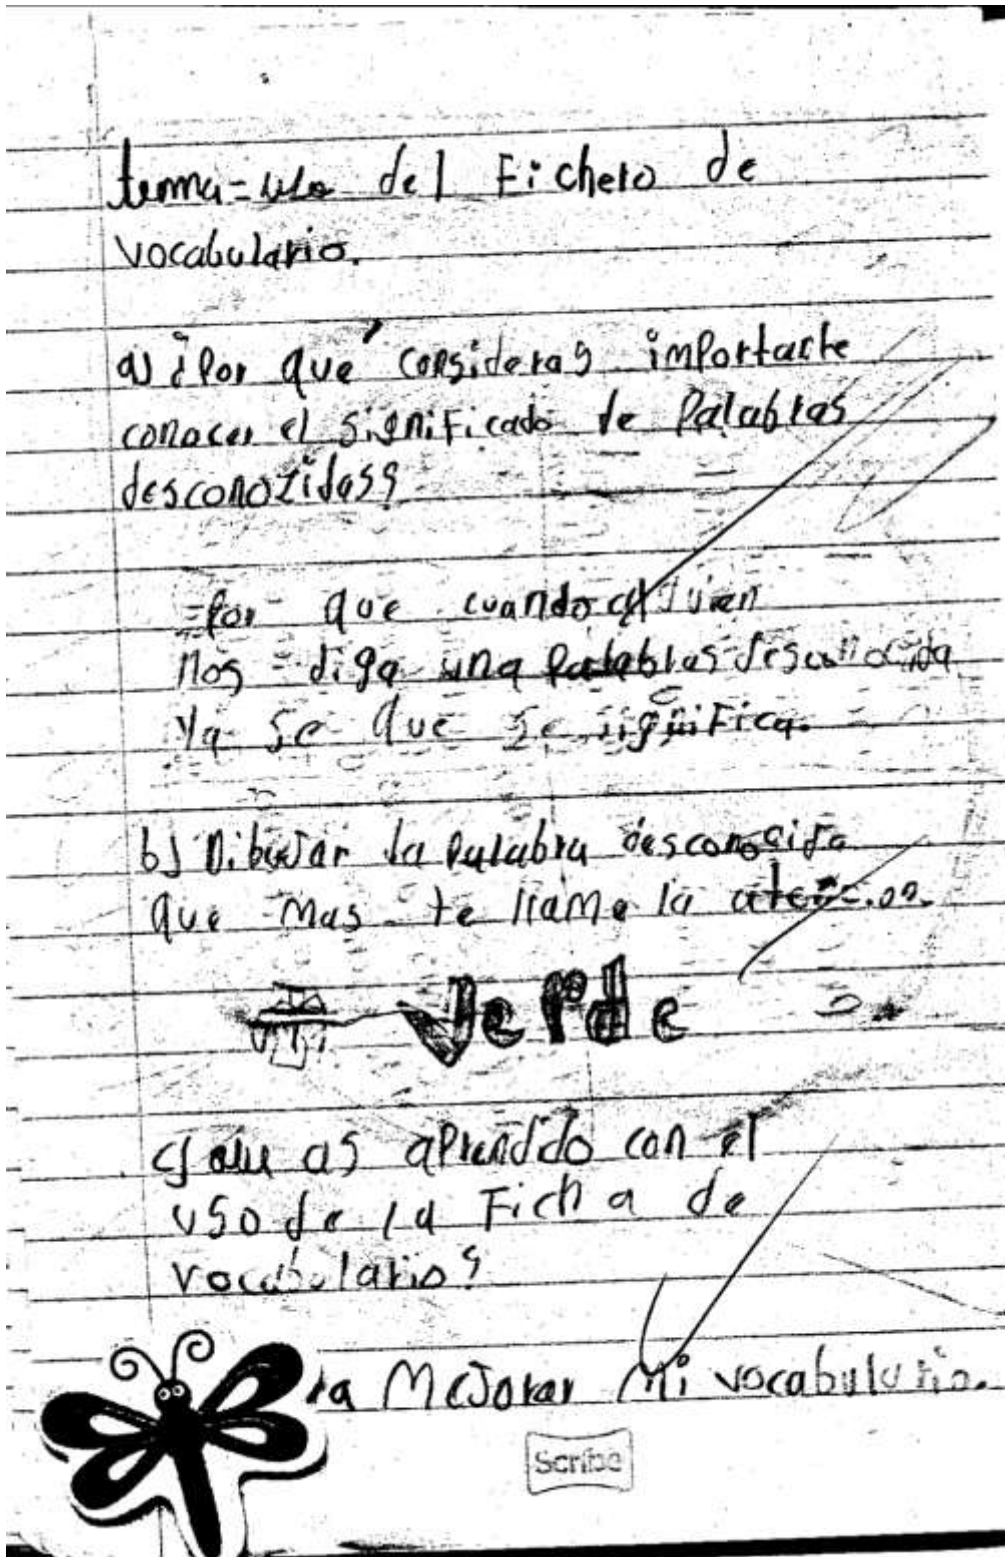 tema=uso del Fichero de
vocabulario.
a) ¿Por qué consideras importante
conocer el significado de Palabras
desconozidas?
=Por que cuando alguien
nos diga una Palabras desconocida
Ya se que se significa.
b) Dibujar la Palabra desconocida
que mas te llame la atencion.
Verde
c) Que as aprendido con el
uso de la Ficha de
vocabulario?
a Mejorar Mi vocabulario.
Scribe